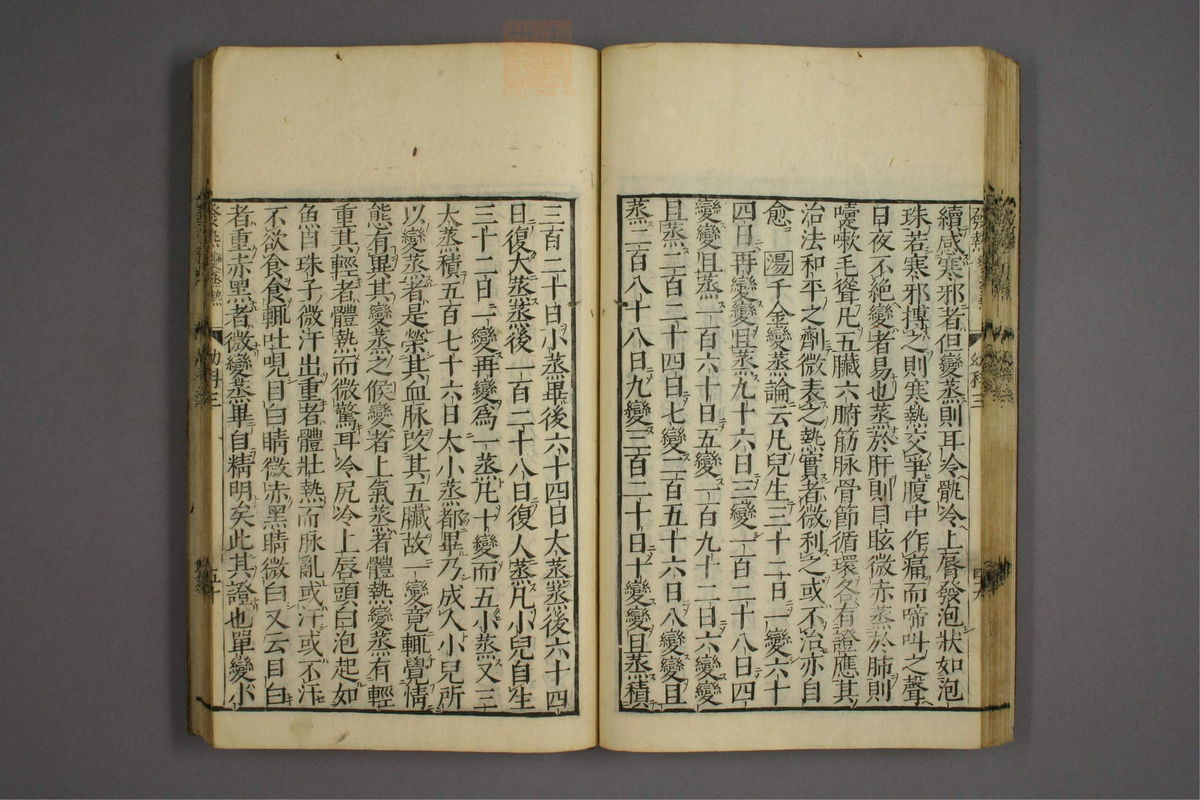 續感寒邪者但變蒸則耳冷骩冷上唇發泡狀如泡
珠若寒邪搏之則寒熱交爭腹中作痛而啼叫之聲
日夜不絶變者易也蒸於肝則目眩微赤蒸於肺則
嚏嗽毛聳凡五臟六腑筋脉骨節循環各有證應其
治法和平之劑微表之熱實者微利之或不治亦自
愈 湯 千金變蒸論云凡兒生三十二日一變六十
四日再變變且蒸九十六日三變一百二十八日四
變變且蒸一百六十日五變一百九十二日六變變
且蒸二百二十四日七變二百五十六日八變變且
蒸二百八十八日九變三百二十日十變變且蒸積
三百二十日小蒸畢後六十四日大蒸蒸後六十四
日復大蒸蒸後一百二十八日復人蒸凡小兒自生
三十二日一變再變爲一蒸凡十變而五小蒸又三
大蒸積五百七十六日大小蒸都畢乃成人小兒所
以變蒸者是榮其血脉改其五臟故一變竟輒覺情
態有異其變蒸之候變者上氣蒸者體熱變蒸有輕
重其輕者體熱而微驚耳冷尻冷上唇頭白泡起如
魚目珠子微汗出重者體壯熱而脉亂或汗或不汗
不欲食食輒吐哯目白睛微赤黑睛微白又云目白
者重赤黑者微變蒸畢自精明矣此其證也單變小
幼科三
五十